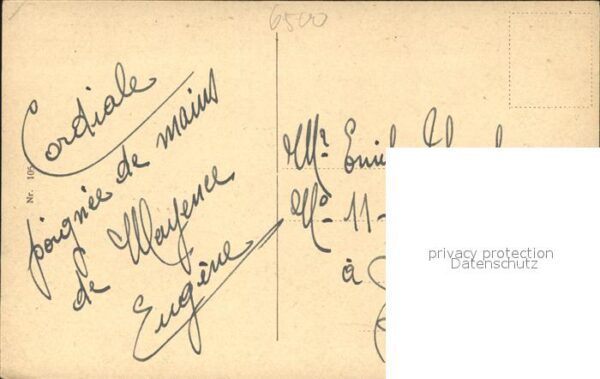 6500
Cordiale
poignée de mains
de Mayence
Eugène
Mr. Emile
No. 11-
à
privacy protection
Datenschutz
Nr. 105